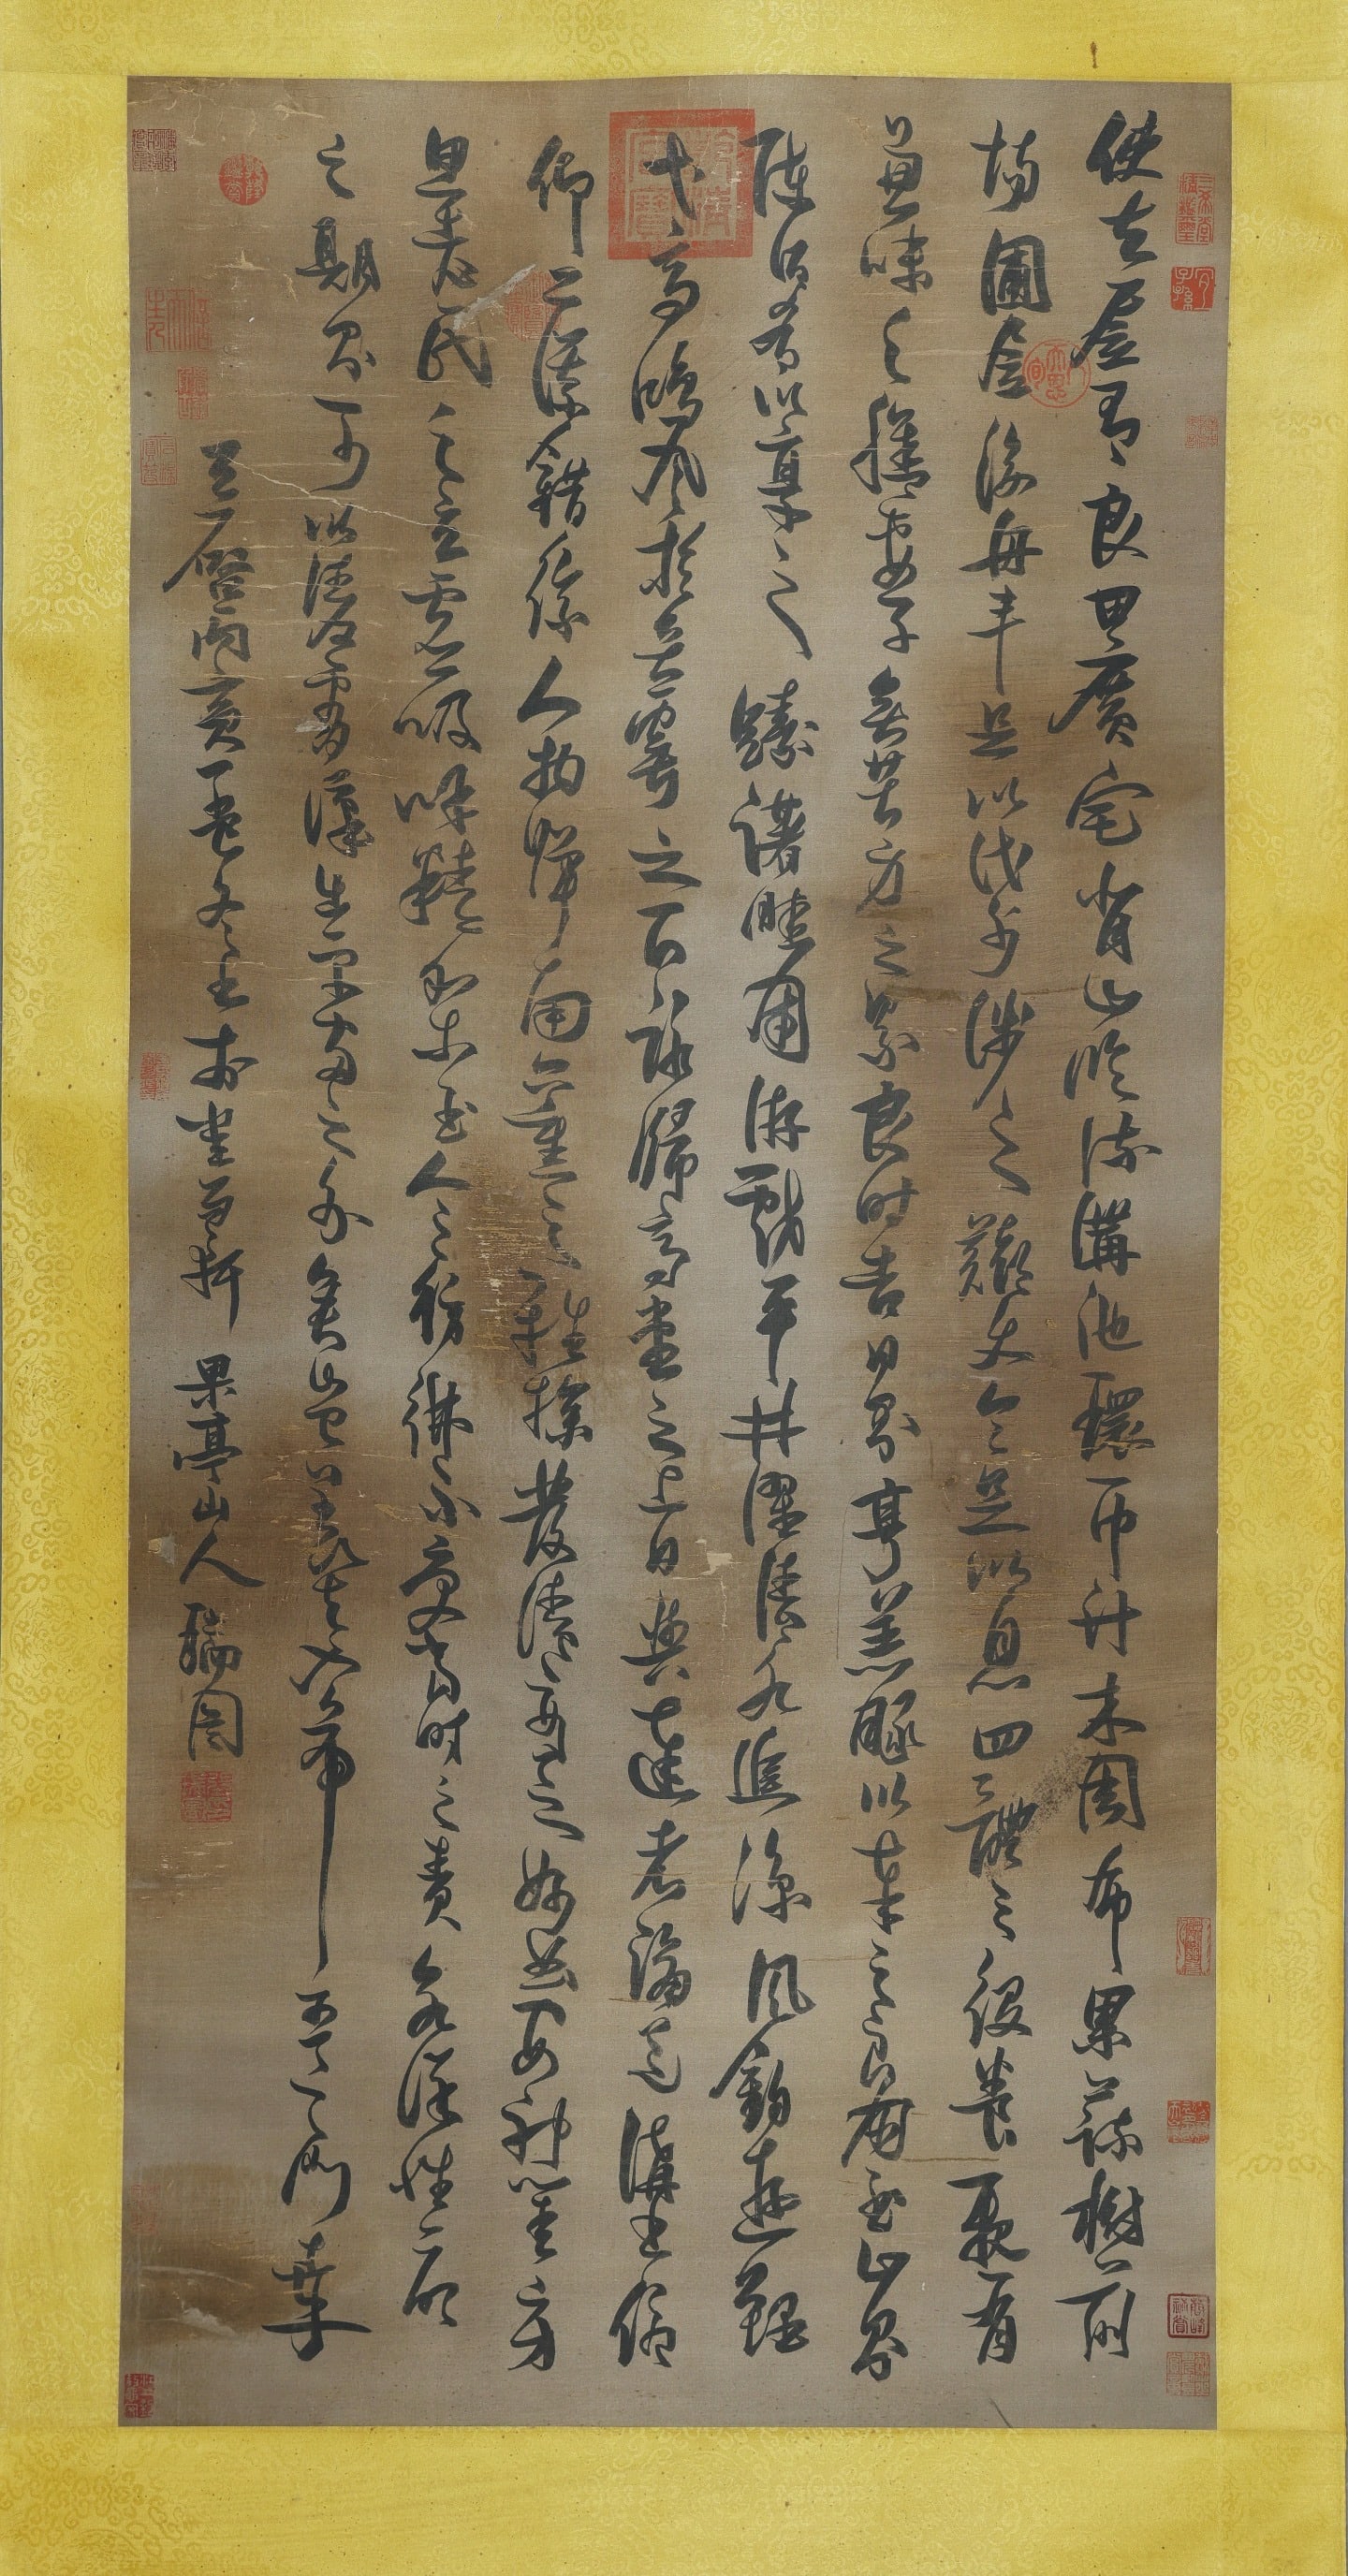 使居有良田廣宅背山臨流溝池環帀竹木周布果蔬樹前
場圃居後舟車足以代步涉之難使令足以息四體之役養親有
兼味之膳妻子無苦身之勞良時吉日則亨羔豚以奉之良朋至止則
陳酒肴以享之躊躇畦圃游戲平林濯清水追涼風釣遊鯉
弋高鴻風於舞雩之下詠歸高堂之上日與達者論道講書俯
仰二儀錯綜人物彈南薰之雅操發清商之妙曲安神閨房
思老氏之玄虛吸呼精和求至人之彷彿不受當時之責永保性命
之期則可以凌霄漢出宇宙之外矣豈羨夫入帝王之門哉
天啟丙寅 果亭山人瑞圖